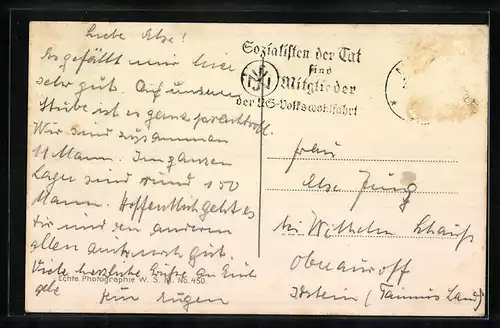 Liebe Else!
Es gefällt mir hier
sehr gut. Auf unserer
Stube ist es ganz prachtvoll.
Wir sind zusammen
11 Mann. Im ganzen
Lager sind rund 150
Mann. Hoffentlich geht es
dir und den anderen
allen auch noch gut.
Viele herzliche Grüße an Euch
Echte Photographie W. S. B. No. 450.
Dein Eugen
Sozialisten der Tat
sind
Mitglieder
der NS-Volkswohlfahrt
Frau
Else Jung
bei Wilhelm
Oberauroff
Idstein (Taunus Land)